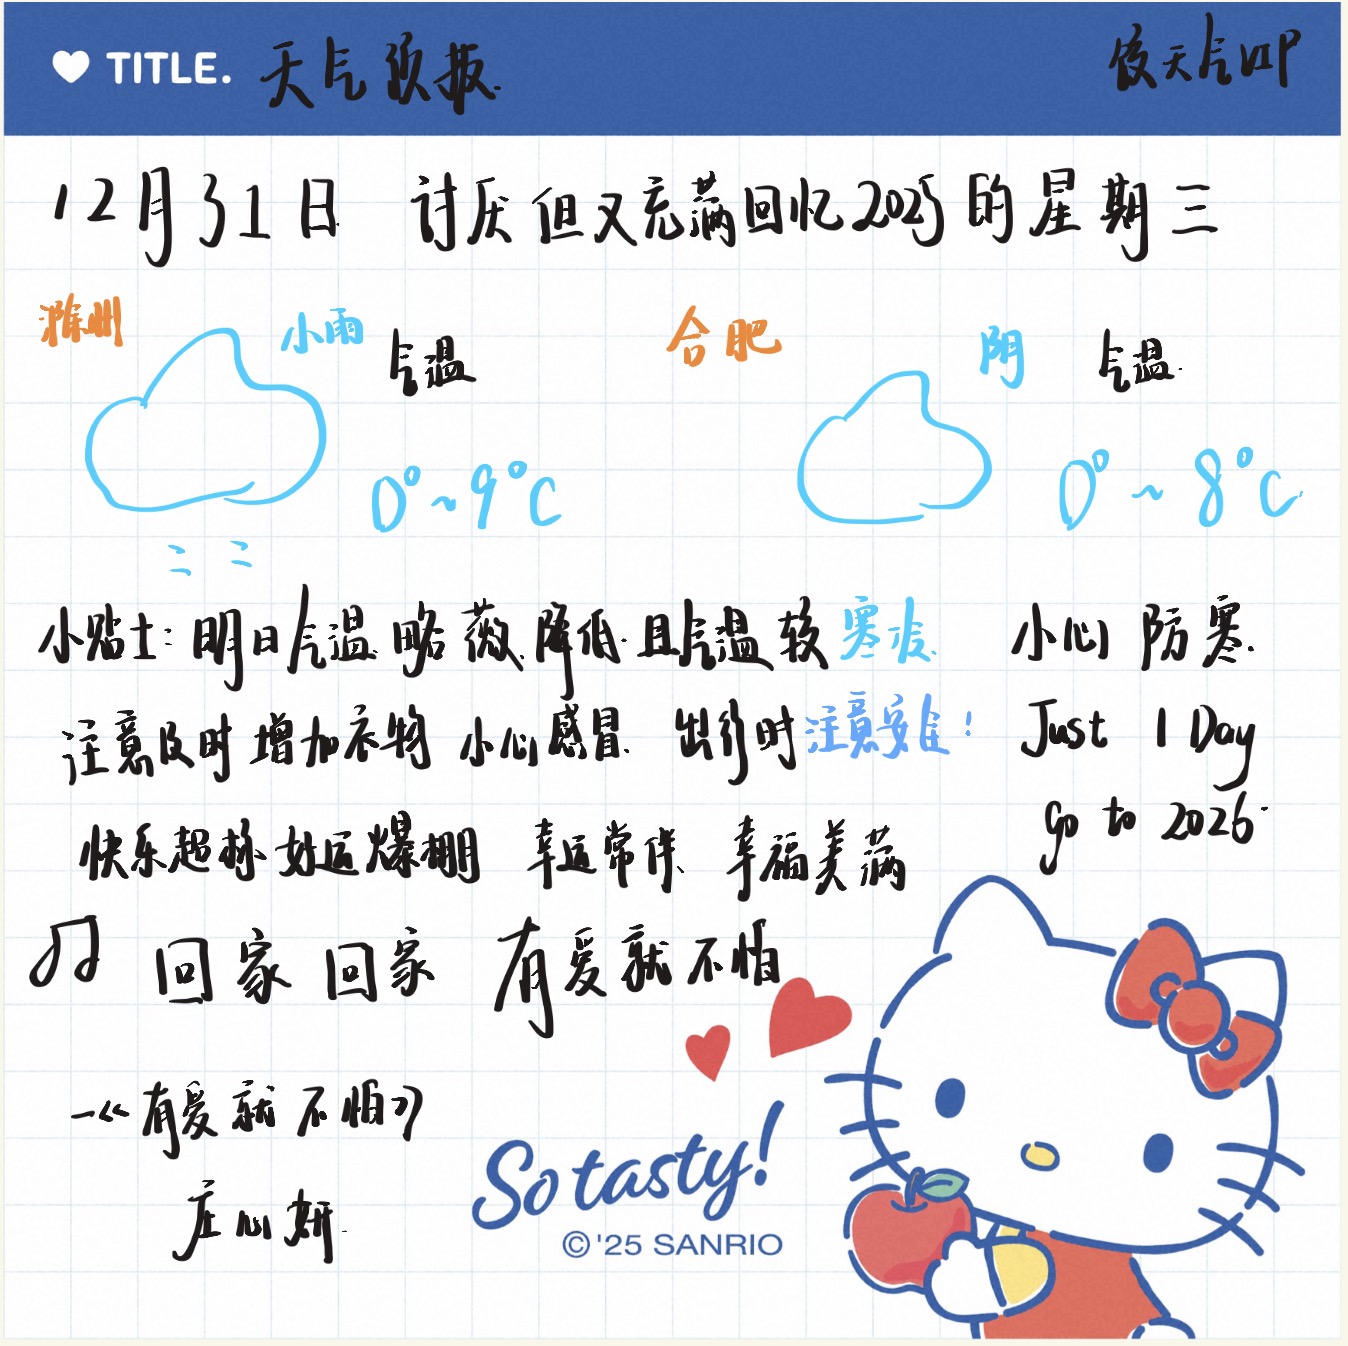 TITLE. 天气预报
天气VIP
12月31日 讨厌但又充满回忆2025的星期三
滁州 小雨 气温
0°~9°C
合肥 阴 气温
0°~8°C
小贴士:明日气温略微降低且气温较寒冷 小心防寒
注意及时增加衣物 小心感冒 出行时注意安全! Just 1 Day
快乐超标 好运爆棚 幸运常伴 幸福美满 go to 2026
回家回家 有爱就不怕
—《有爱就不怕》
庄心妍
So tasty!
©'25 SANRIO